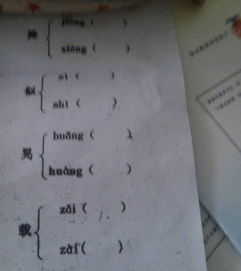 降 jiàng ( )
xiáng ( )
似 sì ( )
shì ( )
晃 huǎng ( )
huàng ( )
载 zǎi ( )
zài ( )